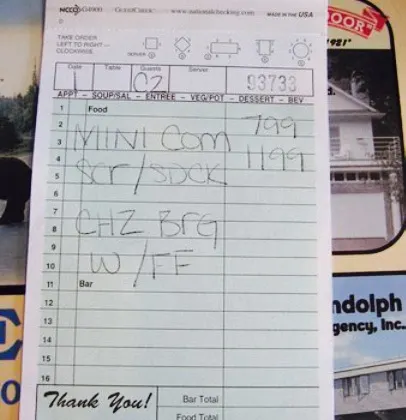 NCCO G4000 GuestCheck™ www.nationalchecking.com MADE IN THE USA
TAKE ORDER
LEFT TO RIGHT –
CLOCKWISE
SERVER
Date Table Guests Server
02 93733
APPT – SOUP/SAL – ENTREE – VEG/POT – DESSERT – BEV
1 Food 799
2
3 MINI COM 1199
4
5 SCR/SDCK
6
7
8 CHZ BrG
9
10 W/FF
11 Bar
12
13
14
15
16
Thank You!
Bar Total
Food Total
OOR"
1921"
d.
ndolph
gency, Inc.